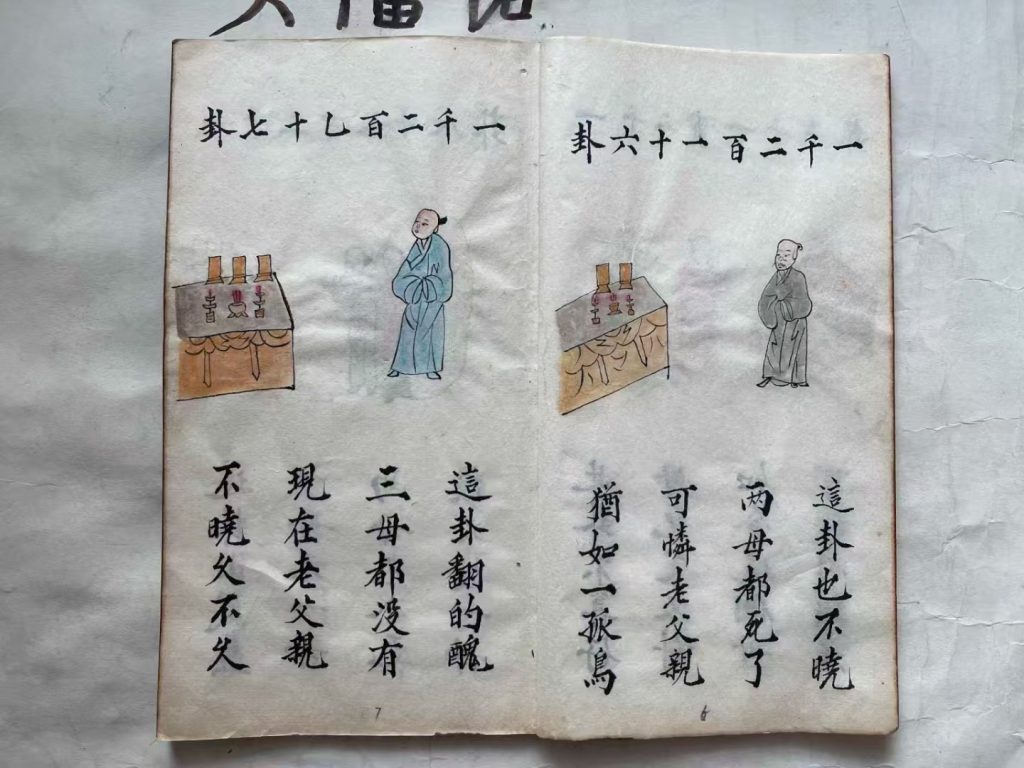 一千二百一十六卦
這卦也不曉
两母都死了
可憐老父親
猶如一孤鳥
6
一千二百乙十七卦
這卦翻的醜
三母都没有
現在老父親
不曉久不久
7